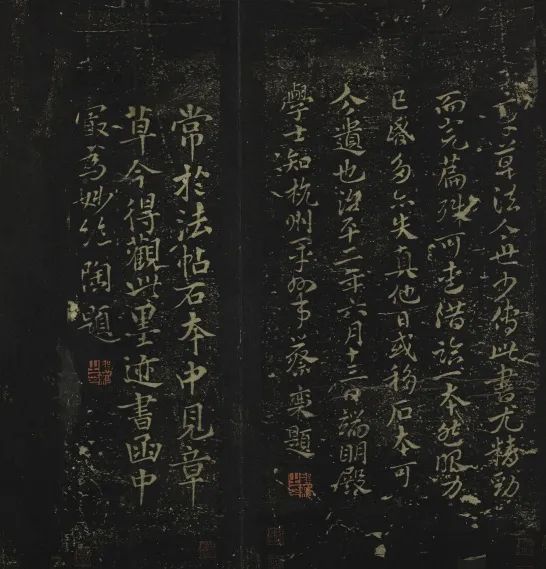 章草法人世少傳此書尤精勁
而完篇殊可愛借臨一本然眼力
已昏多亦失真他日或移石本可
遺也治平二年六月十三日端明殿
學士知杭州軍州事蔡襄題
常於法帖石本中見章
草今得觀此墨迹書函中
最為妙絕陶題